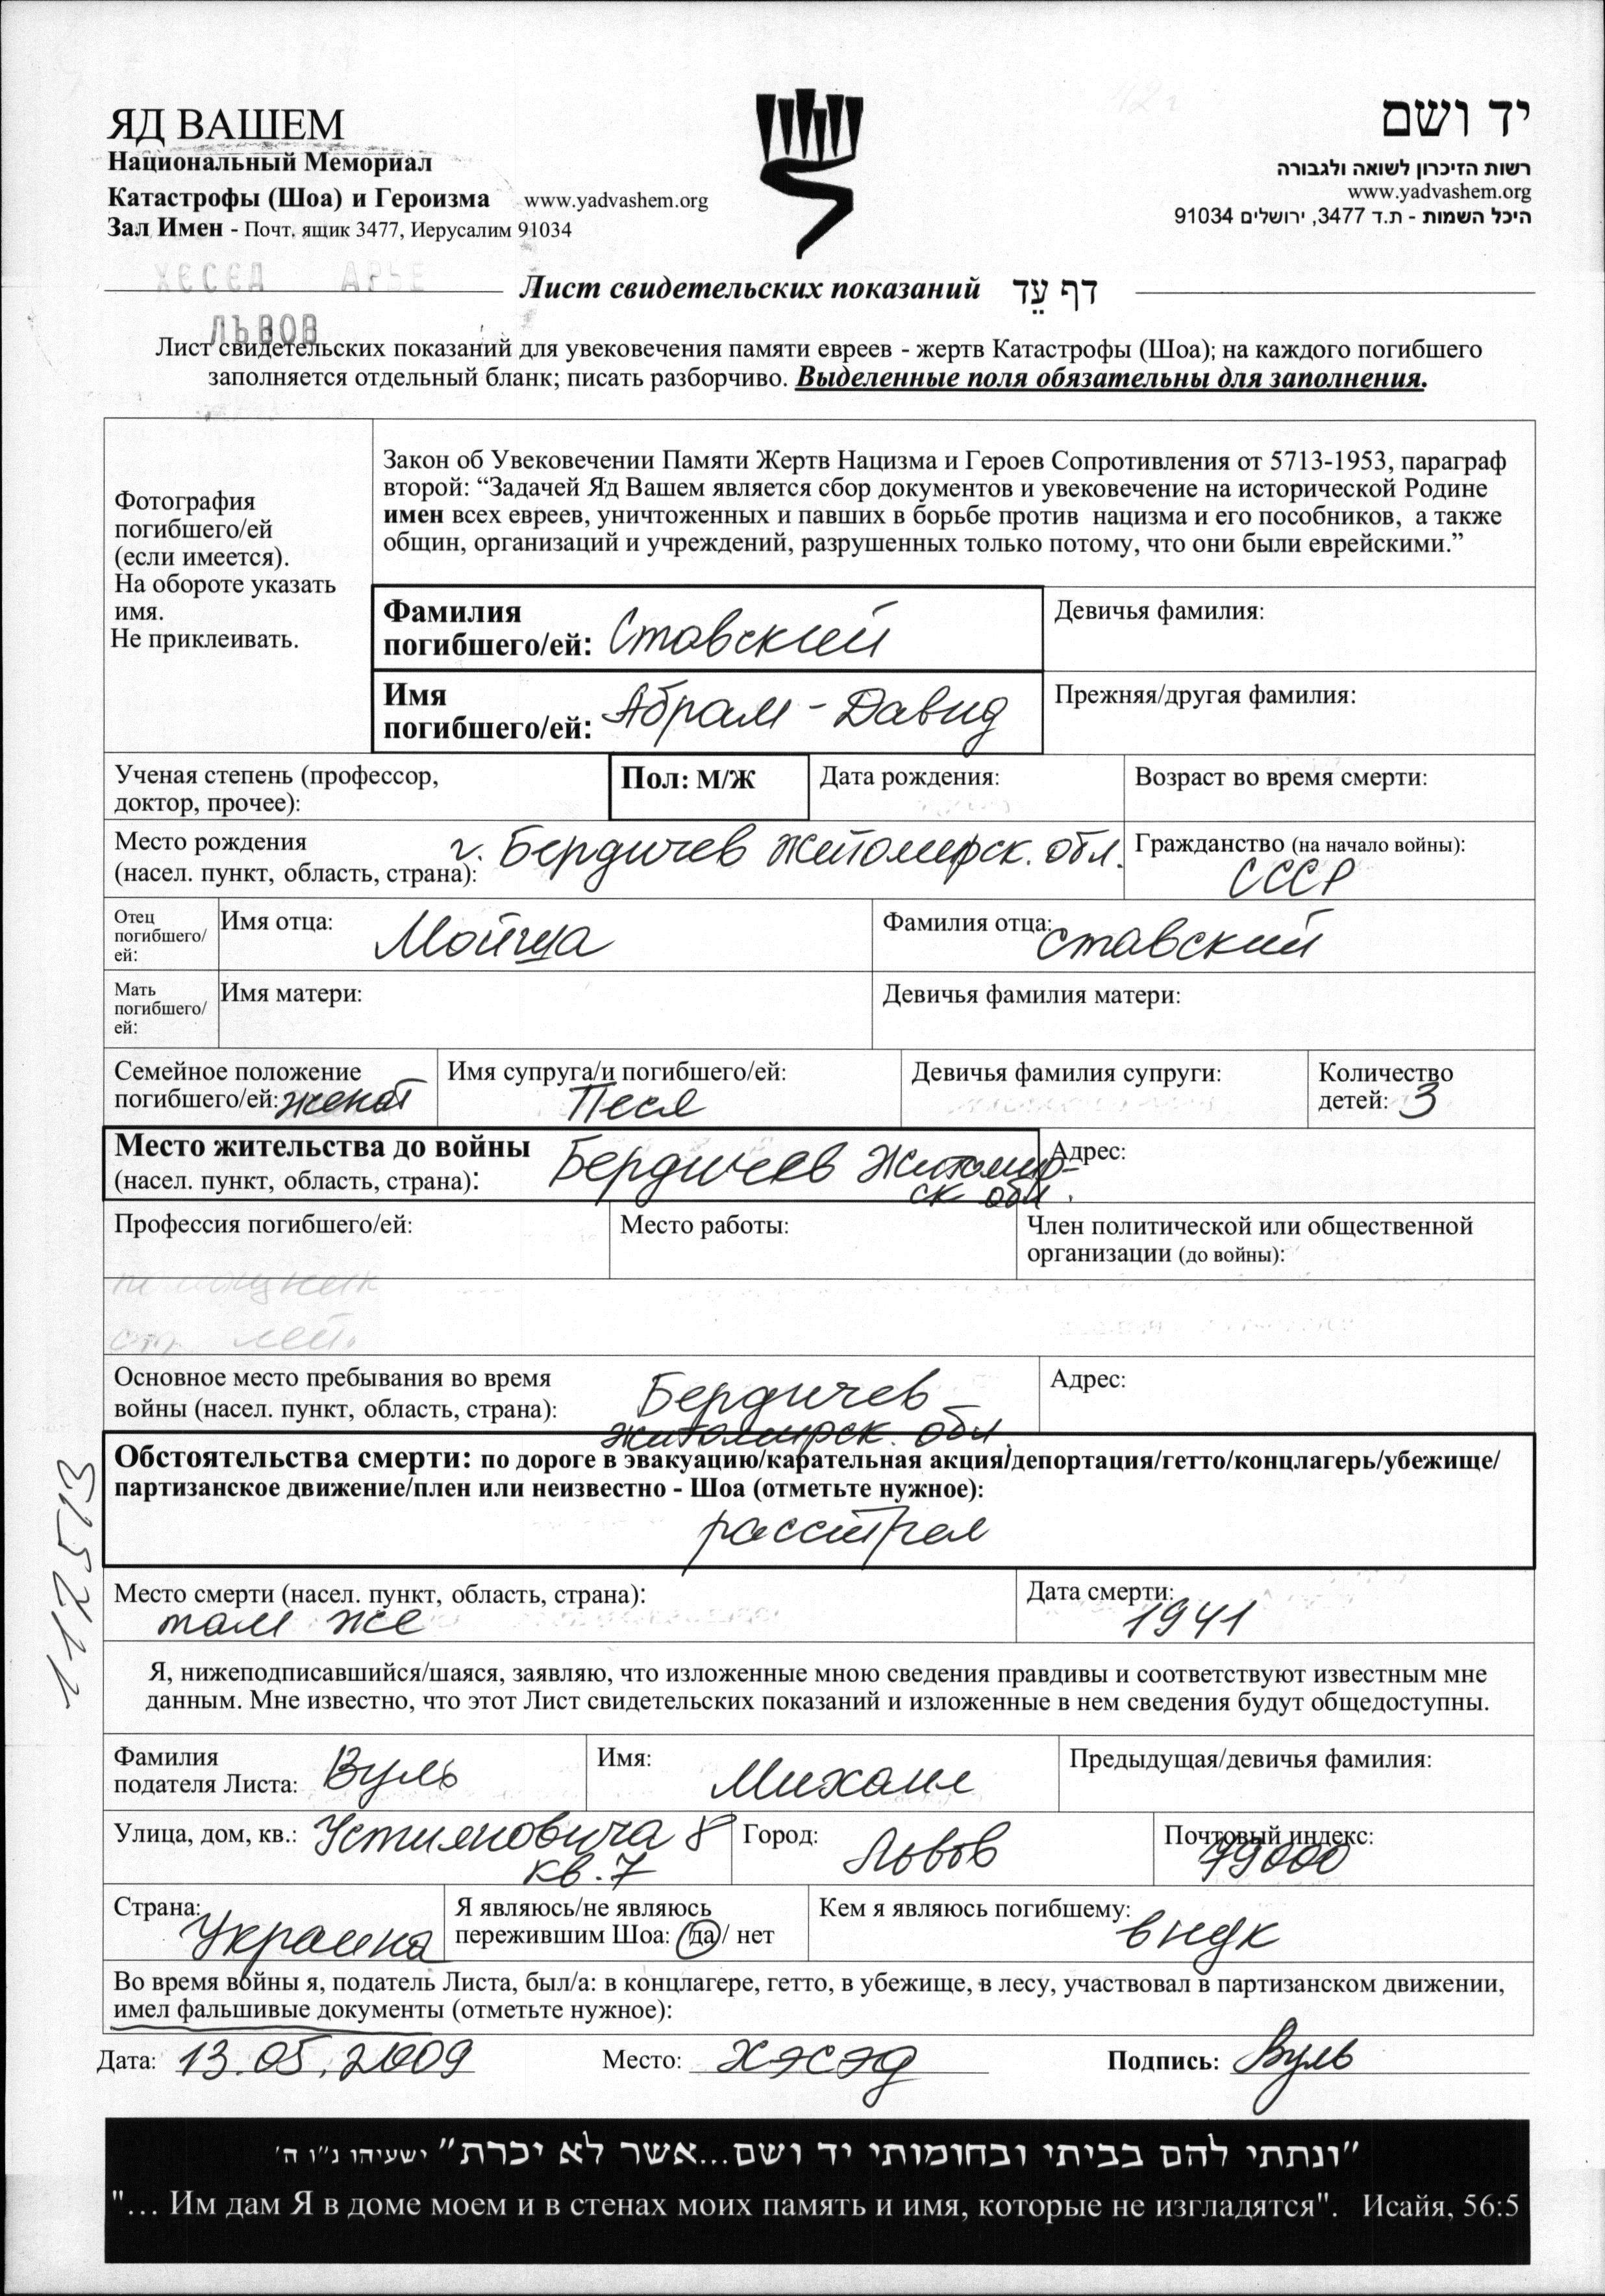 ЯД ВАШЕМ
Национальный Мемориал
Катастрофы (Шоа) и Героизма www.yadvashem.org
Зал Имен - Почт. ящик 3477, Иерусалим 91034
יד ושם
רשות הזיכרון לשואה ולגבורה
www.yadvashem.org
היכל השמות - ת.ד 3477, ירושלים 91034
ХЕСЕД АРЬЕ
ЛЬВОВ
Лист свидетельских показаний דף עֵד
Лист свидетельских показаний для увековечения памяти евреев - жертв Катастрофы (Шоа); на каждого погибшего
заполняется отдельный бланк; писать разборчиво. Выделенные поля обязательны для заполнения.
Фотография
погибшего/ей
(если имеется).
На обороте указать
имя.
Не приклеивать.
Закон об Увековечении Памяти Жертв Нацизма и Героев Сопротивления от 5713-1953, параграф
второй: “Задачей Яд Вашем является сбор документов и увековечение на исторической Родине
имен всех евреев, уничтоженных и павших в борьбе против нацизма и его пособников, а также
общин, организаций и учреждений, разрушенных только потому, что они были еврейскими.”
Фамилия
погибшего/ей: Ставский
Девичья фамилия:
Имя
погибшего/ей: Абрам - Давид
Прежняя/другая фамилия:
Ученая степень (профессор,
доктор, прочее):
Пол: М/Ж
Дата рождения:
Возраст во время смерти:
Место рождения
(насел. пункт, область, страна): г. Бердичев Житомирск. обл.
Гражданство (на начало войны):
СССР
Отец
погибшего/
ей:
Имя отца: Мойша
Фамилия отца: Ставский
Мать
погибшего/
ей:
Имя матери:
Девичья фамилия матери:
Семейное положение
погибшего/ей: женат
Имя супруга/и погибшего/ей:
Песя
Девичья фамилия супруги:
Количество
детей: 3
Место жительства до войны
(насел. пункт, область, страна): Бердичев Житомир-
ск обл.
Адрес:
Профессия погибшего/ей:
Место работы:
Член политической или общественной
организации (до войны):
Основное место пребывания во время
войны (насел. пункт, область, страна): Бердичев
Житомирск. обл.
Адрес:
Обстоятельства смерти: по дороге в эвакуацию/карательная акция/депортация/гетто/концлагерь/убежище/
партизанское движение/плен или неизвестно - Шоа (отметьте нужное):
расстрел
Место смерти (насел. пункт, область, страна):
там же
Дата смерти:
1941
112513
Я, нижеподписавшийся/шаяся, заявляю, что изложенные мною сведения правдивы и соответствуют известным мне
данным. Мне известно, что этот Лист свидетельских показаний и изложенные в нем сведения будут общедоступны.
Фамилия
подателя Листа: Вуль
Имя: Михаил
Предыдущая/девичья фамилия:
Улица, дом, кв.: Устияновича 8
кв. 7
Город: Львов
Почтовый индекс:
79000
Страна: Украина
Я являюсь/не являюсь
пережившим Шоа: да / нет
Кем я являюсь погибшему:
внук
Во время войны я, податель Листа, был/а: в концлагере, гетто, в убежище, в лесу, участвовал в партизанском движении,
имел фальшивые документы (отметьте нужное):
Дата: 13.05.2009 Место: Хэсэд Подпись: Вуль
"ונתתי להם בביתי ובחומותי יד ושם...אשר לא יכרת" ישעיהו נ"ו ה'
"… Им дам Я в доме моем и в стенах моих память и имя, которые не изгладятся". Исайя, 56:5